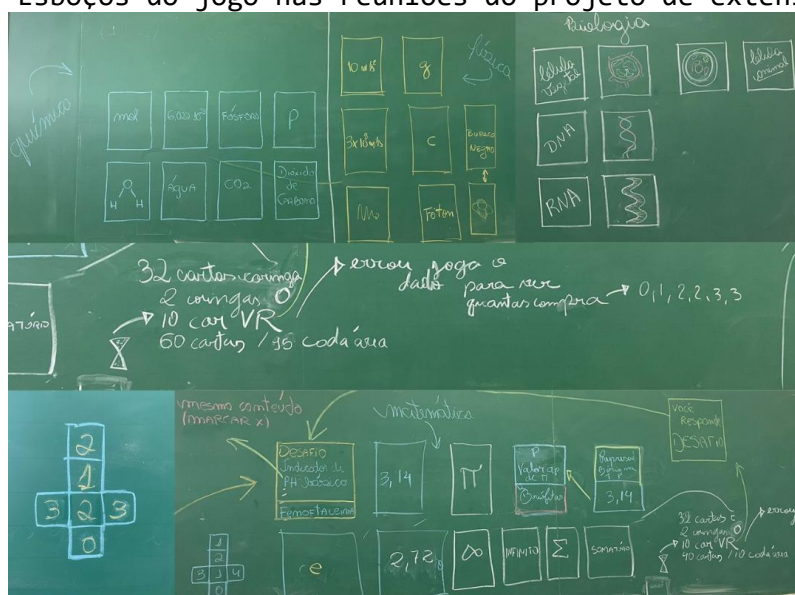 Esboços do jogo nas reuniões do projeto de exten
química
mol
6,022·10²³
Fósforo
P
H H
Água
CO2
Dióxido
de
Carbono
física
10 m/s²
g
3x10⁸ m/s
c
Buraco
Negro
Fóton
Biologia
célula
vegetal
célula
animal
DNA
RNA
32 cartas coringa
2 coringas
10 car VR
60 cartas / 15 cada área
errou joga o
dado para ver
quantas compra → 0,1,2,2,3,3
ATÓRIO
2
1
3 2 3
0
mesmo conteúdo
(MARCAR X)
matemática
DESAFIO
Indicador de
PH Básico
Fenoftaleína
3,14
π
P
Valor ap
de π
3,14
Você
Responde
DESAFIO
e
2,72
∞
INFINITO
Σ
SOMATÓRIO
32 cartas c
2 coringas
10 car VR
40 cartas / 10 cada área
errou